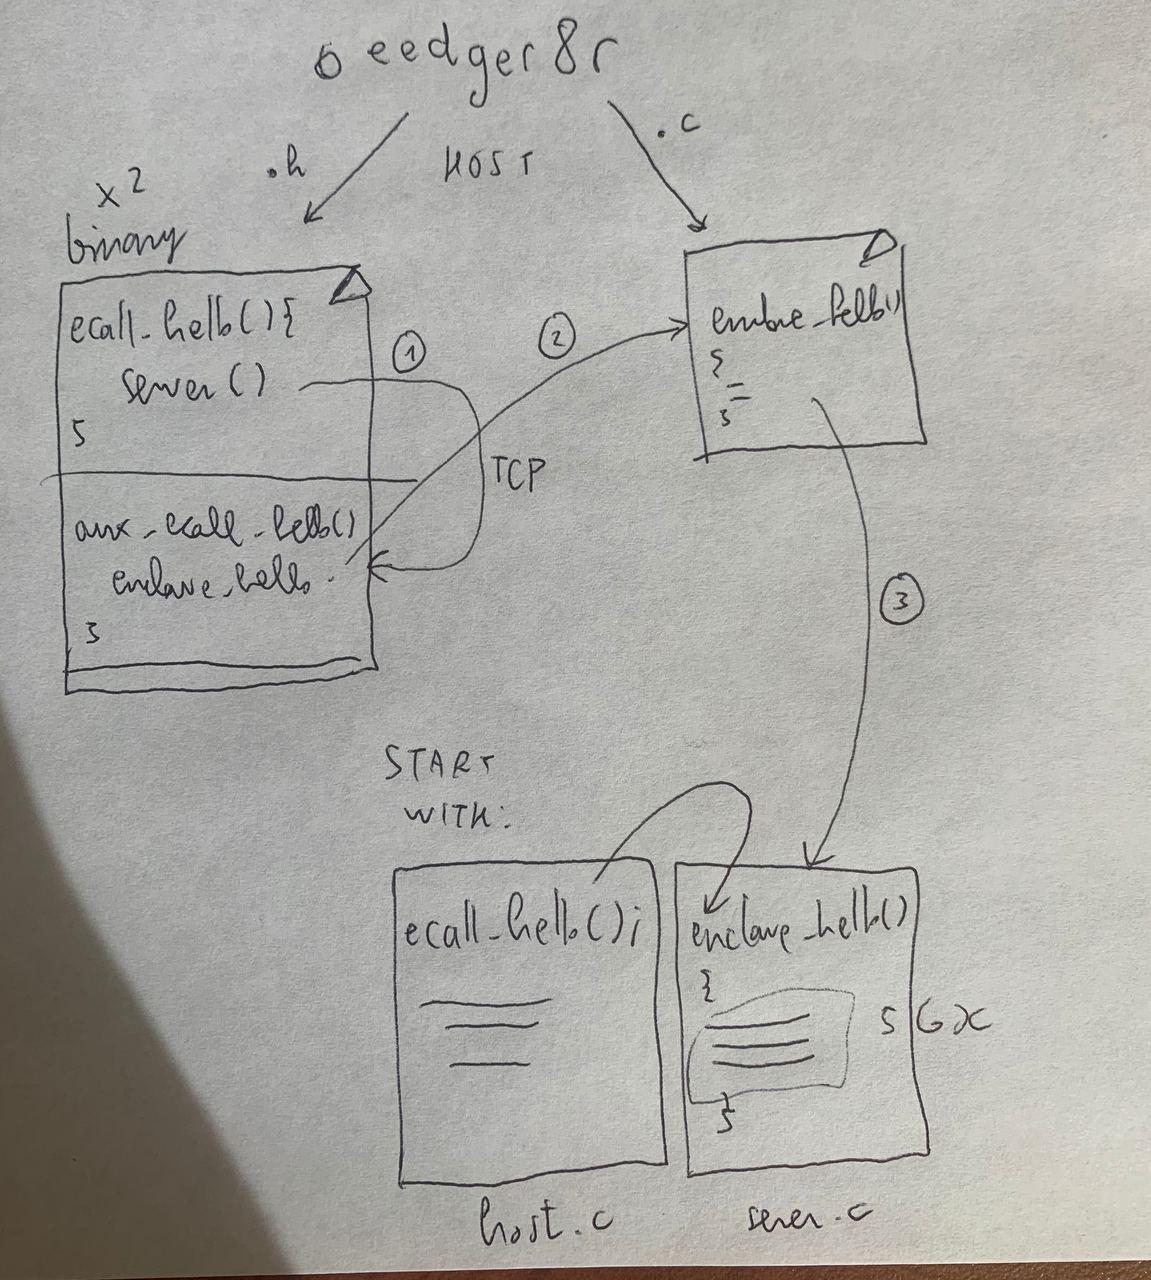 oeedger8r
.h
HOST
.c
x2
binary
ecall_hello(){
server()
}
①
TCP
aux_ecall_hello()
enclave_hello
}
②
enclave_hello()
{
}
③
START
WITH:
ecall_hello();
host.c
enclave_hello()
{
SGX
}
server.c